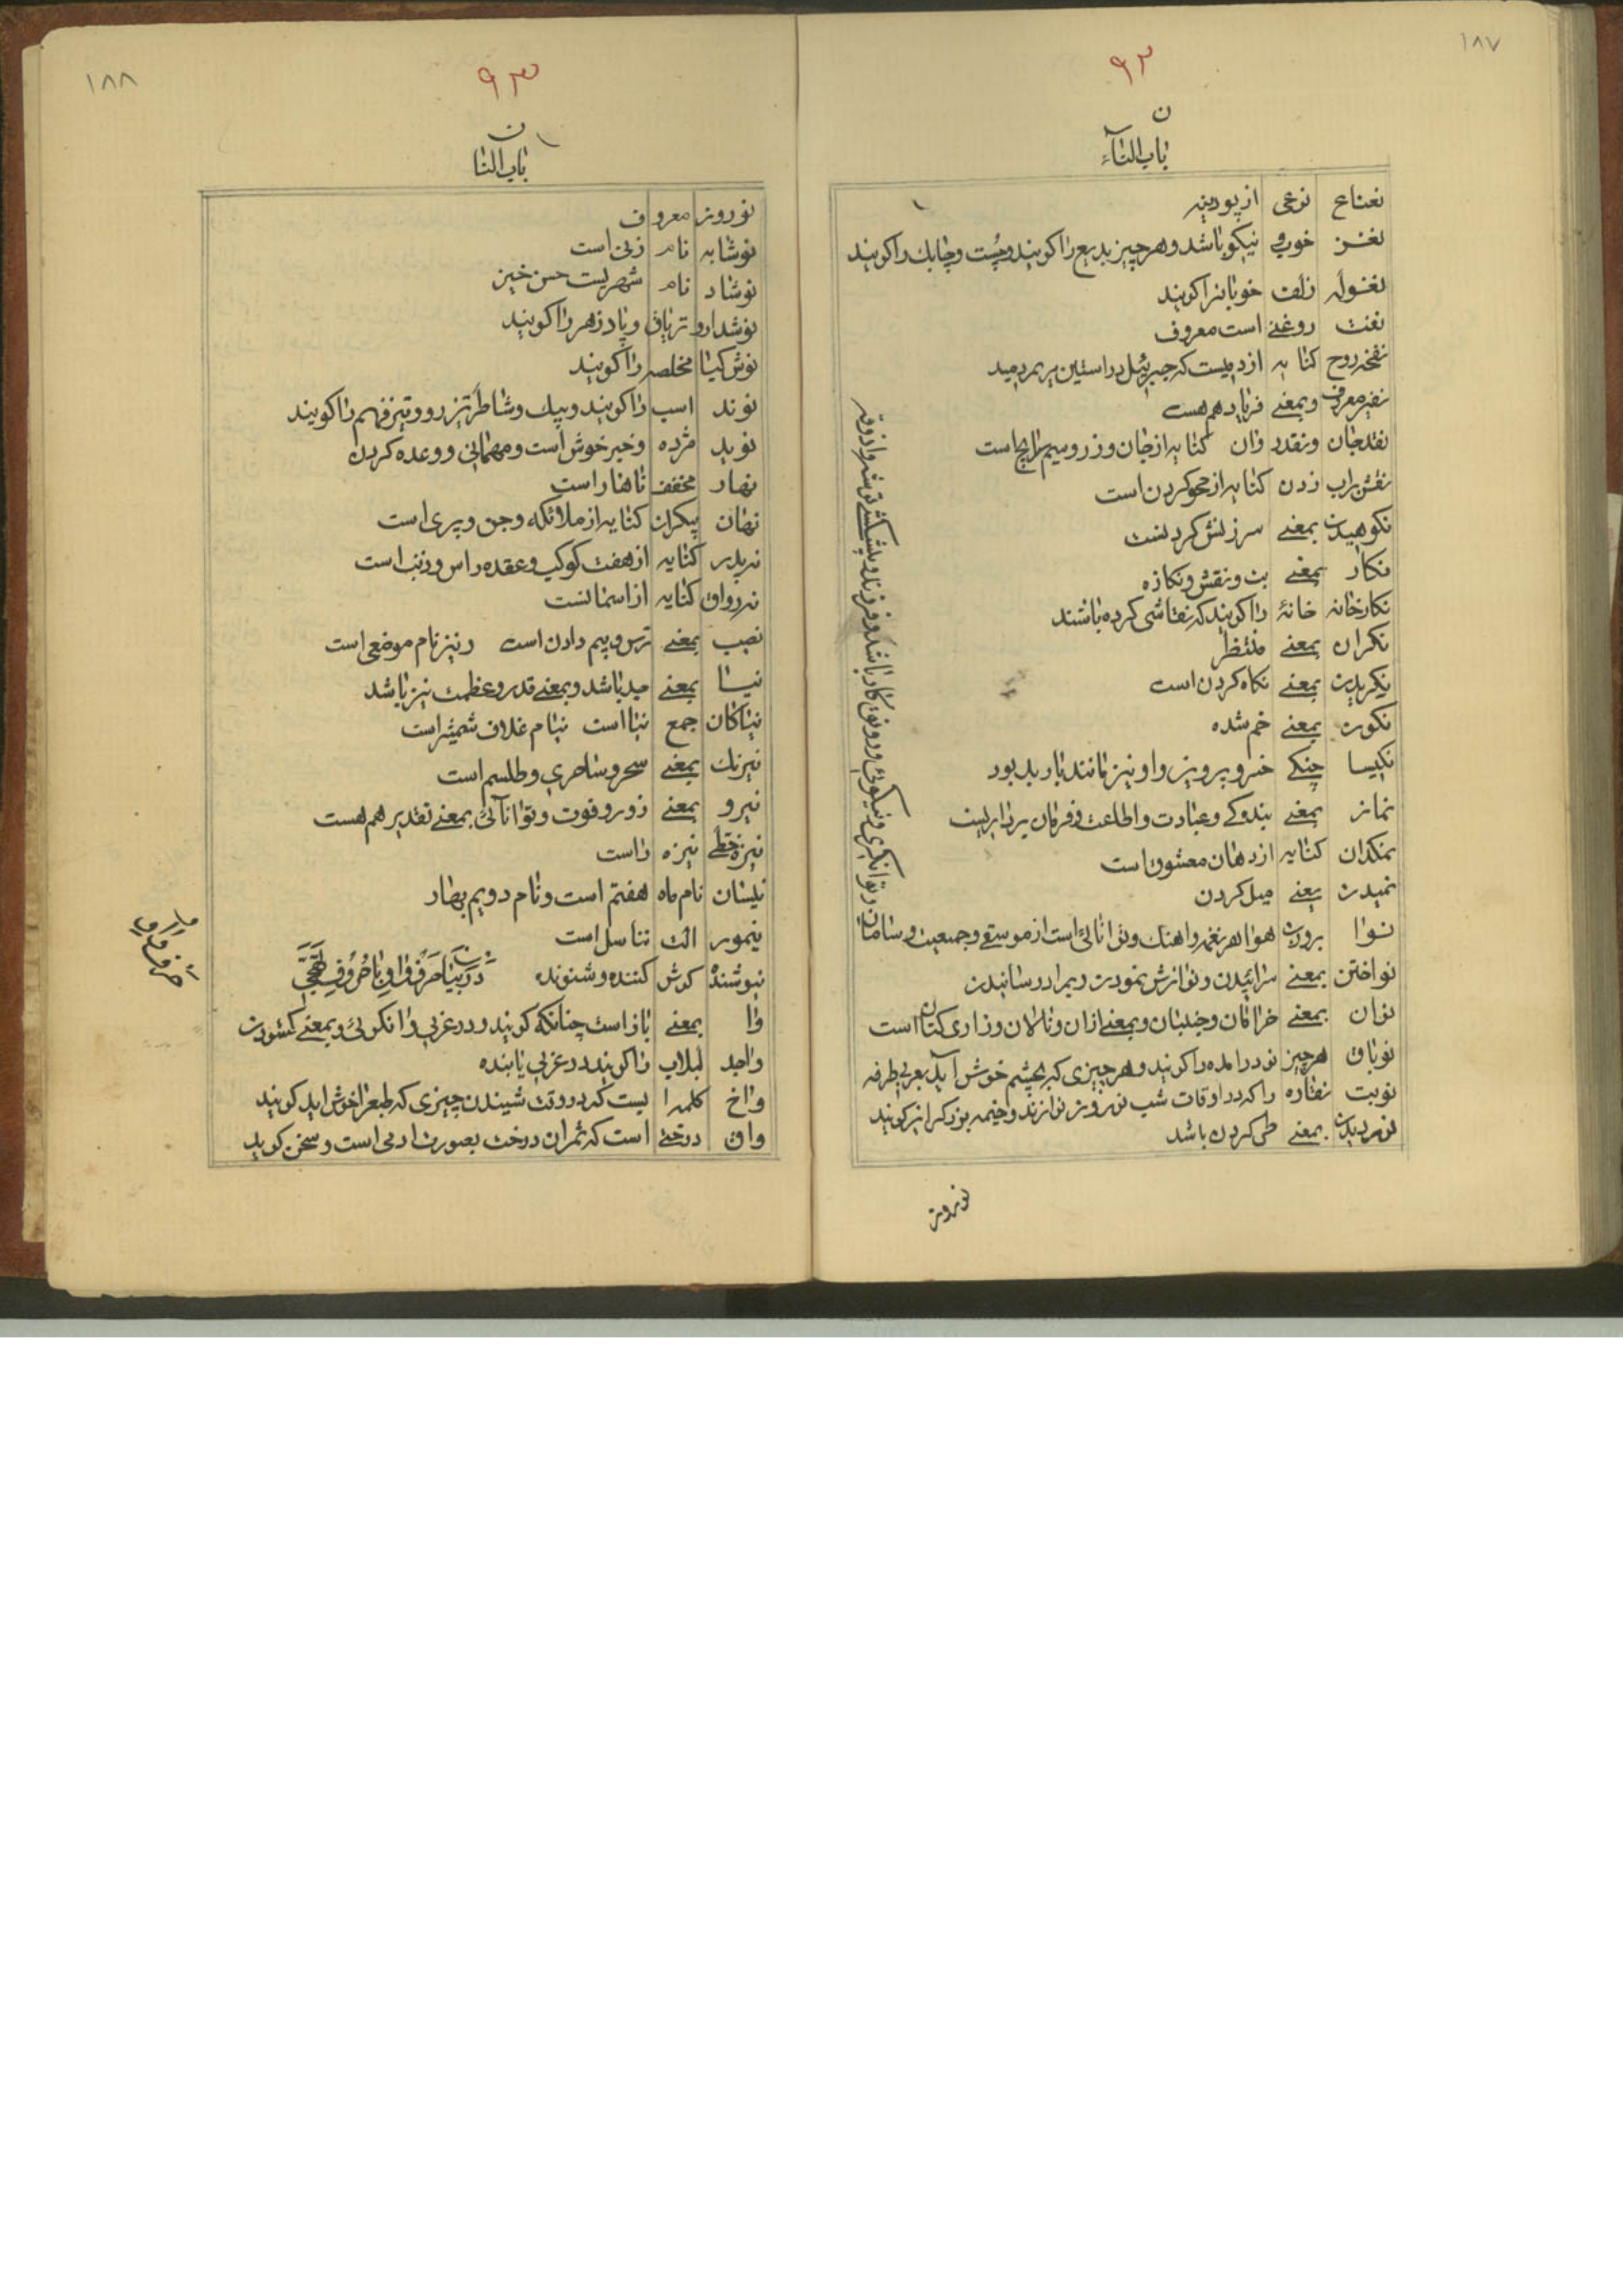 ١٨٧
٩٢
ن
باب النآء
نعناع نوعی از پودینه
نغـز خوب و نیکو باشد و هر چیز بدیع را کویند و چُست و چابك را کویند
نغوله زلف خوبانرا کویند
نفت روغنے است معروف
نفخه روح کنایه از دمیست که جبرئیل در استین مریم دمید
نفیر معروف و بمعنے فریاد هم هست
نقد جان و نقد روان کنایه از جان و زر و سیم رایج است
نقش بر اب زدن کنایه از محو کردن است
نکوهیدن بمعنے سرزنش کردنست
نکار بمعنے بت و نقش و نکاره
نکارخانه خانهٔ را کویند که نقاشی کرده باشند
نکران بمعنے منتظر
نکریدن بمعنے نکاه کردن است
نکون بمعنے خم شده
نکیسا چنکے خسرو پرویز و او نیز مانند باربد بود
نماز بمعنے بندکے و عبادت و اطاعت و فرمان برداریست
نمکدان کنایه از دهان معشوق است
نمیدن بمعنے میل کردن
نـوا بروزن هوا هر نغمه و اهنك و نوائی است از موسیقے و جمعیت و سامان
و توانکری و نیکوئی و رونق کار باشد و فرزند و پیشکش و توشه و اذوقه
نواختن بمعنے سرائیدن و نوازش نمودن و بمراد رسانیدن
نوان بمعنے خرامان و جنبنان و بمعنے لرزان و نالان و زاری کنان است
نوباق هر چیز نو در امده را کویند و هر چیزی که بچشم خوش آید بعربی طرفه
نوبت نقاره را که در اوقات شب نوروز نوازند و خیمه بزرك را نیز کویند
نوردیدن بمعنے طی کردن باشد
نوروز
١٨٨
٩٣
ن
باب النا
نوروز معروف
نوشابه نام زنی است
نوشاد نام شهریست حسن خیز
نوشدارو تریاق و پادزهر را کویند
نوش کیا مخلصه را کویند
نوند اسب را کویند و پیك و شاطر تیز رو و تیز فهم را کویند
نوید مژده و خبر خوش است و مهمانی و وعده کردن
نهار مخفف ناهار است
نهان پیکران کنایه از ملائکه و جن و پری است
نه پدر کنایه از هفت کوکب و عقده راس و ذنب است
نه رواق کنایه از اسمانست
نهیب بمعنے ترس و بیم دادن است و نیز نام موضعی است
نیـا بمعنے جد باشد و بمعنے قدر و عظمت نیز باشد
نیاکان جمع نیا است نیام غلاف شمشیر است
نیرنك بمعنے سحر و ساحری و طلسم است
نیرو بمعنے زور و قوت و توانآئی بمعنے تقدیر هم هست
نیزه خطے نیزه راست
نیسان نام ماه هفتم است و نام دویم بهار
نیمور الت تناسل است
نیوشنده کوش کننده و شنونده در بیان حَرفِ واو با حُروفِ تَهَجّی
وا بمعنے باز است چنانکه کویند و در عربی وا نکوئی و بمعنے کشودن
واجد لبلاب را کویند در عربی یابنده
واخ کلمه ایست که در وقت شنیدن چیزی که طبعرا خوش اید کویند
واق درختے است که ثمر ان درخت بصورت ادمی است و سخن کوید